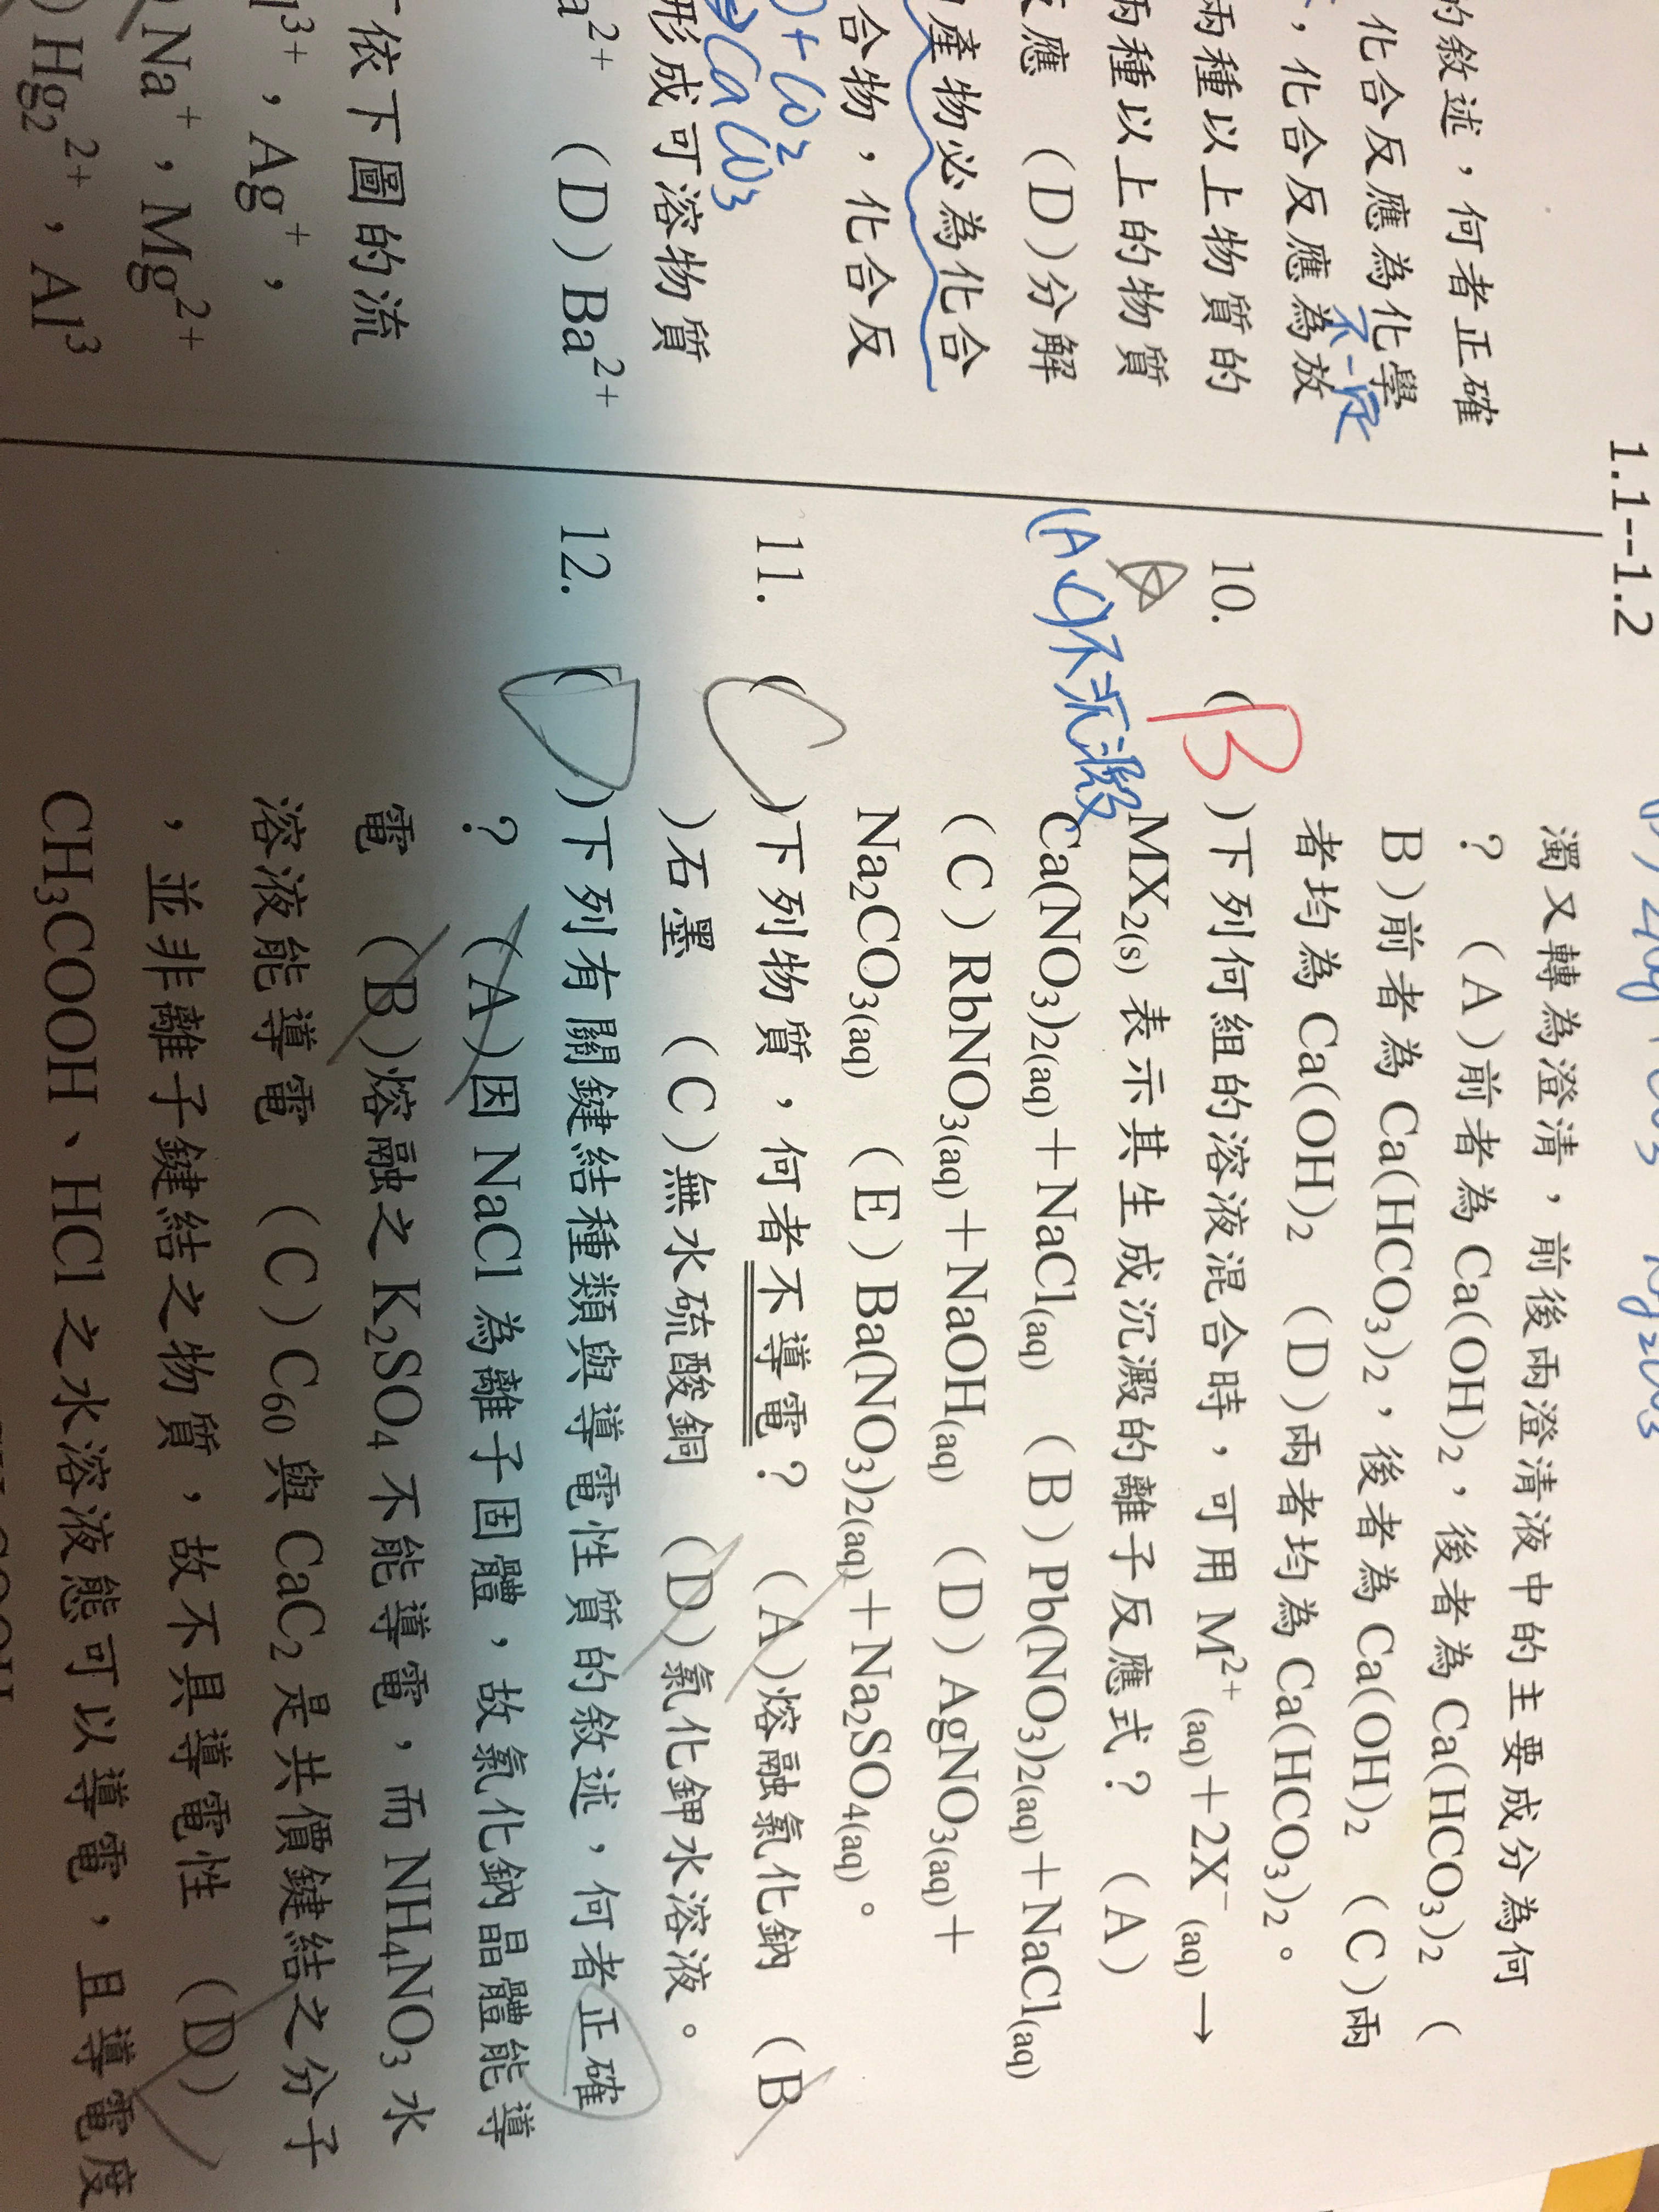 1.1--1.2
的敘述，何者正確
化合反應為化學
不一定
，化合反應為放
兩種以上物質的
兩種以上的物質
反應 (D)分解
產物必為化合
合物，化合反
)+CO2
→CaCO3
形成可溶物質
a²⁺ (D)Ba²⁺
依下圖的流
l³⁺，Ag⁺，
Na⁺，Mg²⁺
)Hg₂²⁺，Al³
濁又轉為澄清，前後兩澄清液中的主要成分為何
？ (A)前者為 Ca(OH)₂，後者為 Ca(HCO₃)₂ (
B)前者為 Ca(HCO₃)₂，後者為 Ca(OH)₂ (C)兩
者均為 Ca(OH)₂ (D)兩者均為 Ca(HCO₃)₂。
10. ( B )下列何組的溶液混合時，可用 M²⁺(aq)＋2X⁻(aq)→
MX₂(s) 表示其生成沉澱的離子反應式？ (A)
(A)不沉澱
Ca(NO₃)₂(aq)＋NaCl(aq) (B)Pb(NO₃)₂(aq)＋NaCl(aq)
(C)RbNO₃(aq)＋NaOH(aq) (D)AgNO₃(aq)＋
Na₂CO₃(aq) (E)Ba(NO₃)₂(aq)＋Na₂SO₄(aq)。
11. ( C )下列物質，何者不導電？ (A)熔融氯化鈉 (B
)石墨 (C)無水硫酸銅 (D)氯化鉀水溶液。
12. ( D )下列有關鍵結種類與導電性質的敘述，何者正確
？ (A)因 NaCl 為離子固體，故氯化鈉晶體能導
電 (B)熔融之 K₂SO₄ 不能導電，而 NH₄NO₃ 水
溶液能導電 (C)C₆₀ 與 CaC₂ 是共價鍵結之分子
，並非離子鍵結之物質，故不具導電性 (D)
CH₃COOH、HCl 之水溶液態可以導電，且導電度